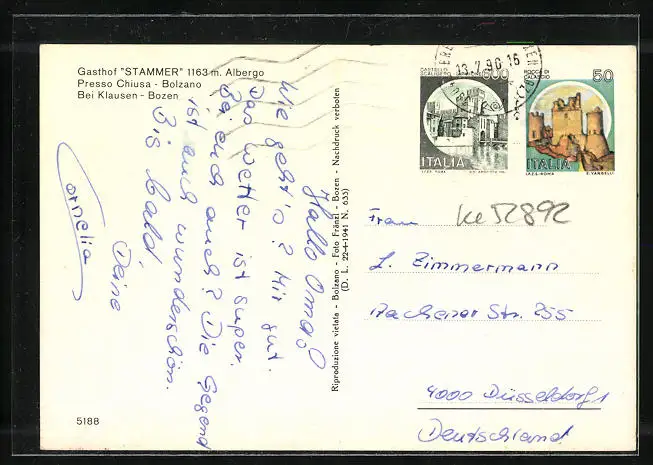 Gasthof "STAMMER" 1163 m. Albergo
Presso Chiusa - Bolzano
Bei Klausen - Bozen
Hallo Oma!
Wie geht's? Mir gut.
Das Wetter ist super.
Bei euch auch? Die Gegend
ist auch wunderschön.
Bis bald,
Deine
Cornelia
5188
Riproduzione vietata - Bolzano - Foto Fränzl - Bozen - Nachdruck verboten
(D. L. 22-4-1941 N. 633)
13.7.90 16
CASTELLO
SCALIGERO
600
ITALIA
50
ITALIA
I.P.Z.S. ROMA
E. VANGELLI
Ke 52892
Frau
L. Zimmermann
Aachener Str. 255
4000 Düsseldorf 1
Deutschland